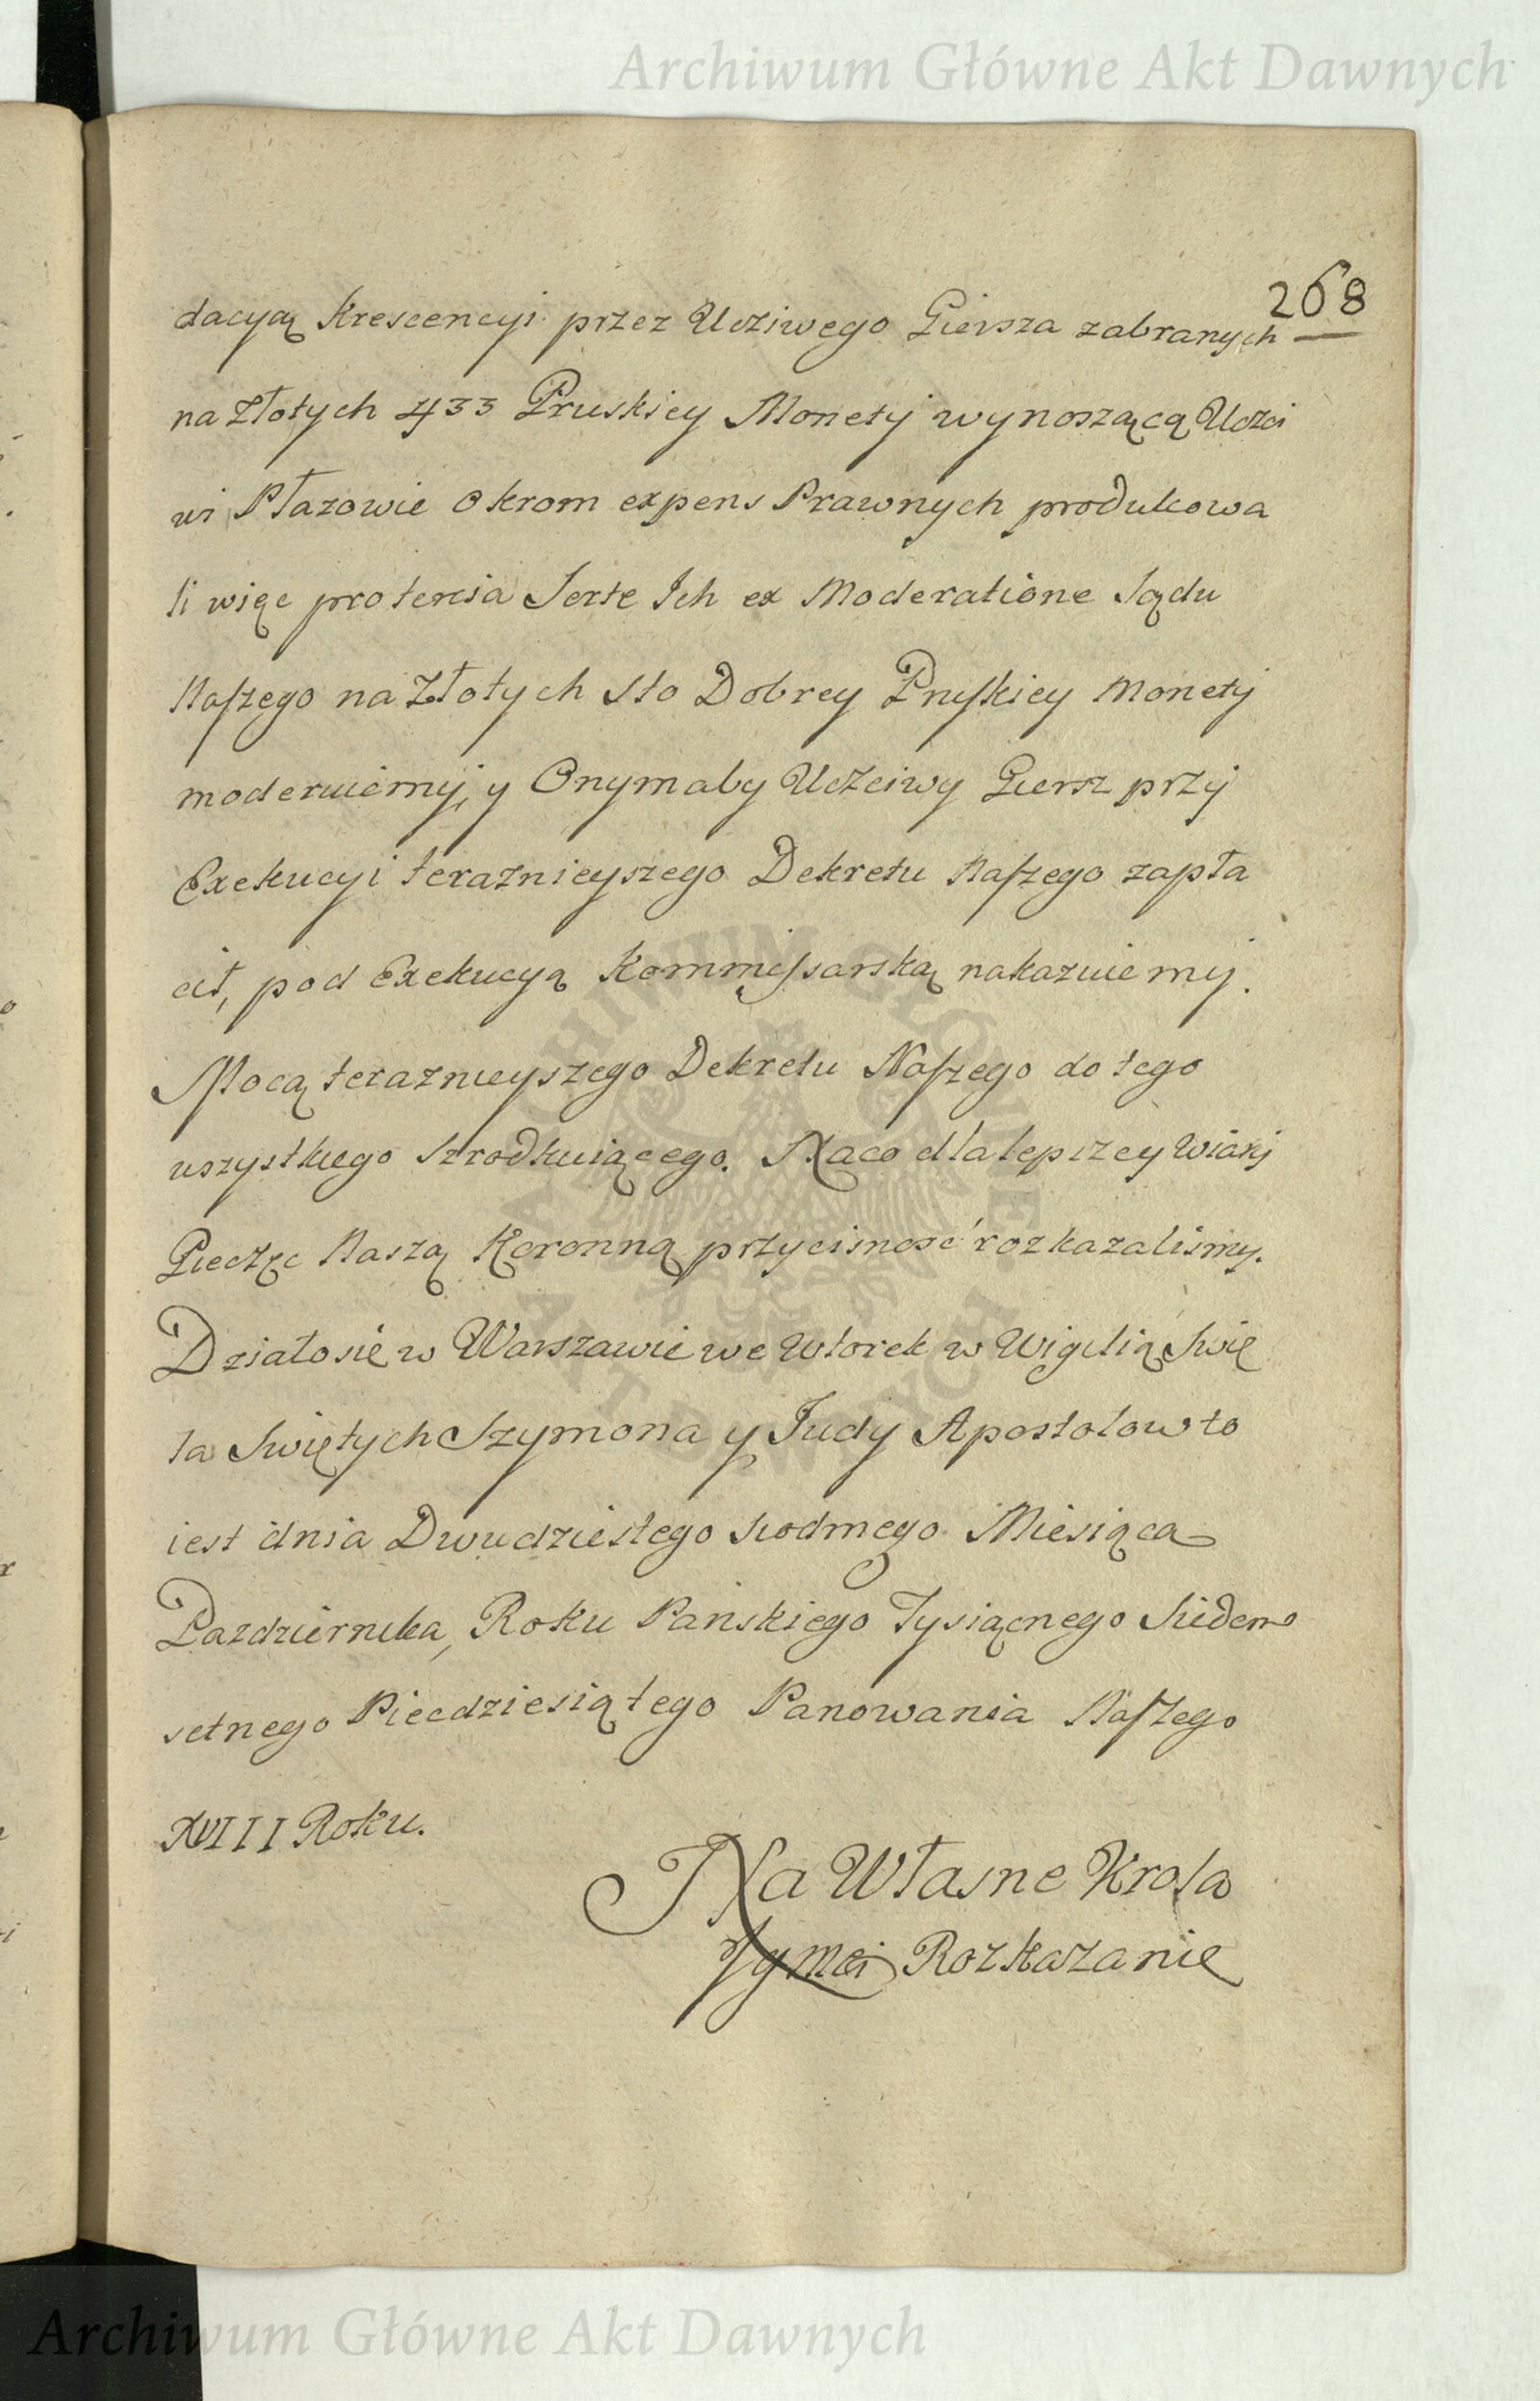 Archiwum Główne Akt Dawnych
268
dacyą Krescencyi przez Uczciwego Giersza zabranych
na Złotych 433 Pruskiey Monety wynoszącą Uczci
wi Płazowie okrom expens Prawnych produkowa
li więc pro tercia Sorte Ich ex Moderatione Sądu
Naszego na Złotych Sto Dobrey Pruskiey Monety
moderuiemy, y Onym aby Uczciwy Giersz przy
Exekucyi teraznieyszego Dekretu Naszego zapła
cił, pod Exekucyą Kommissarską nakazuiemy.
Mocą teraznieyszego Dekretu Naszego do tego
wszystkiego szrodkuiącego. Na co dla lepszey Wiary
Pieczęc Naszą Koronną przycisnąć rozkazalismy.
Działo sie w Warszawie we Wtorek w Wigilią Swię
ta Swiętych Szymona y Judy Apostolow to
iest dnia Dwudziestego siodmego Miesiąca
Pazdziernika, Roku Panskiego Tysiącnego Siedem
setnego Piecdziesiątego Panowania Naszego
XVIII Roku.
Na Własne Krola
Jymci Rozkazanie
ARCHIWUM GŁÓWNE
AKT DAWNYCH
Archiwum Główne Akt Dawnych